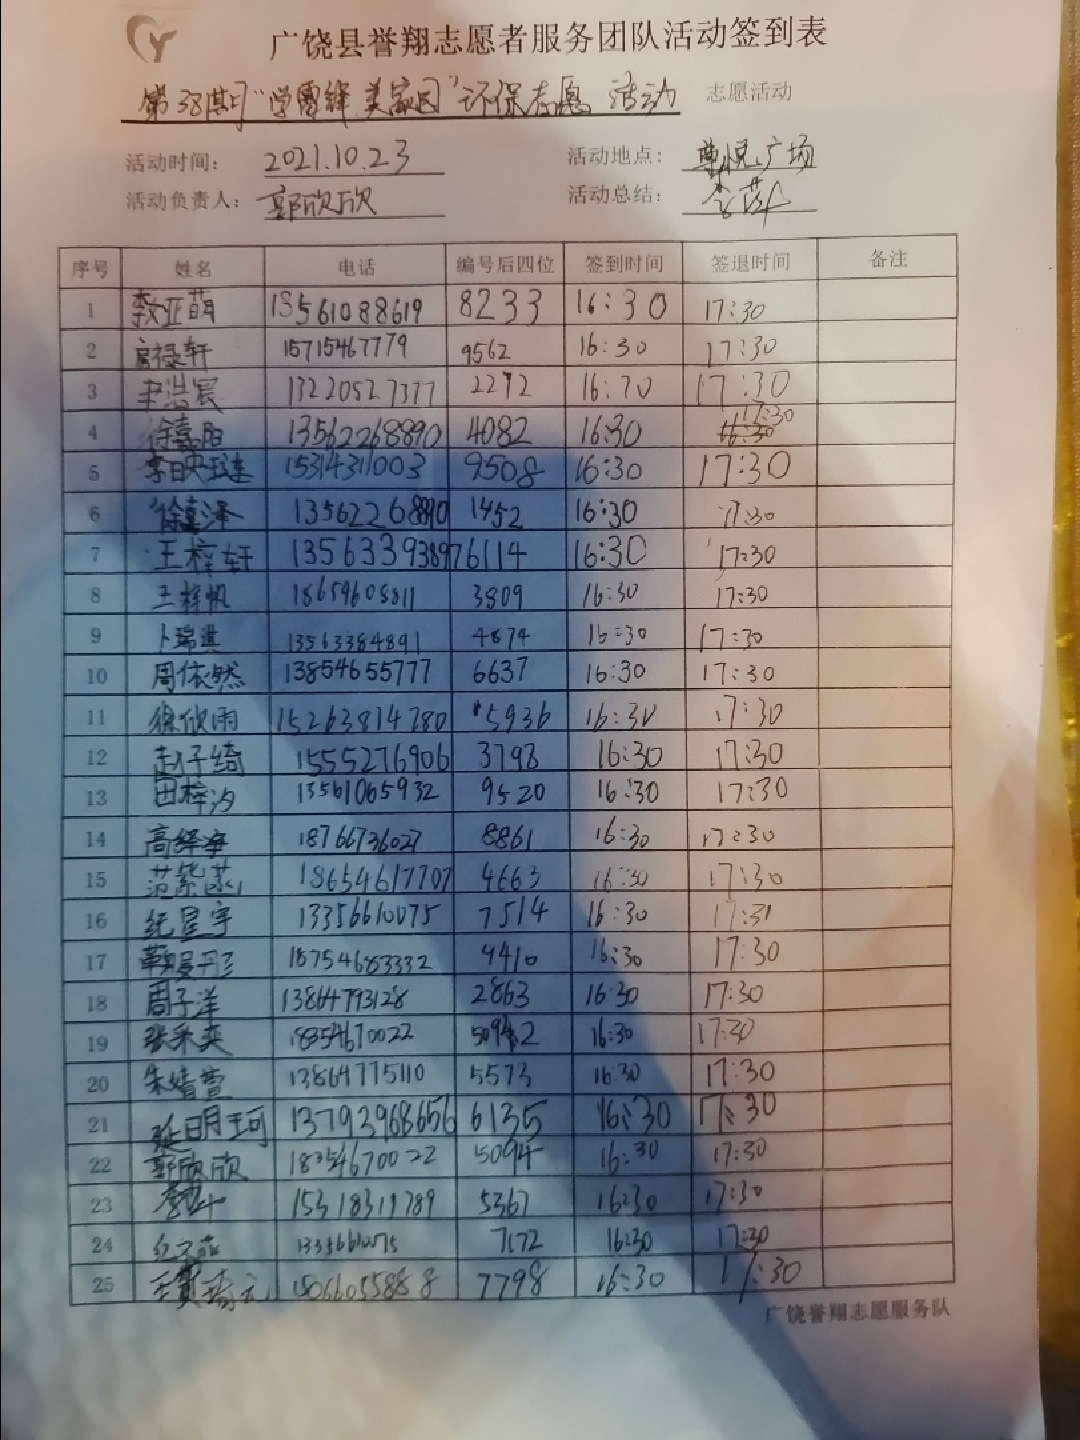 广饶县誉翔志愿者服务团队活动签到表
第38期"学雷锋 美家园"环保志愿 活动 志愿活动
活动时间： 2021.10.23 活动地点： 尊悦广场
活动负责人： 郭欣欣 活动总结： 李萍
序号 姓名 电话 编号后四位 签到时间 签退时间 备注
1 李亚萌 13561088619 8233 16:30 17:30
2 房禄轩 15715467779 9562 16:30 17:30
3 尹浩宸 13220527377 2272 16:70 17:30
4 徐嘉阳 13562268890 4082 16:30 17:30
5 李映琏 15314311003 9508 16:30 17:30
6 徐嘉泽 13562268890 1452 16:30 17:30
7 王梓轩 13563393897 6114 16:30 17:30
8 王梓帆 18659605811 3809 16:30 17:30
9 卜瑞淇 13563384891 4874 16:30 17:30
10 周依然 13854655777 6637 16:30 17:30
11 徐欣雨 15263814780 5936 16:30 17:30
12 赵仔绮 15552776906 3798 16:30 17:30
13 田梓汐 13561065932 9520 16:30 17:30
14 18766736027 8861 16:30 17:30
15 范紫菡 18654617707 4663 16:30 17:30
16 纪星宇 13356610075 7514 16:30 17:31
17 18754683332 9410 16:30 17:30
18 周子洋 13864793128 2863 16:30 17:30
19 张采奕 18354670022 16:30 17:30
20 朱婧萱 13864775110 5573 16:30 17:30
21 延明珂 13793968656 6135 16:30 17:30
22 郭欣欣 18354670022 5094 16:30 17:30
23 15318311789 5367 16:30 17:30
24 13356610075 7172 16:30 17:30
25 15066055888 7798 16:30 17:30
广饶誉翔志愿服务队